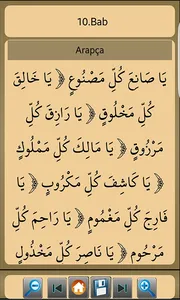 10.Bab
Arapça
يَا صَانِعَ كُلِّ مَصْنُوعٍ ﴿ يَا خَالِقَ
كُلِّ مَخْلُوقٍ ﴿ يَا رَازِقَ كُلِّ
مَرْزُوقٍ ﴿ يَا مَالِكَ كُلِّ مَمْلُوكٍ
﴿ يَا كَاشِفَ كُلِّ مَكْرُوبٍ ﴿ يَا
فَارِجَ كُلِّ مَغْمُومٍ ﴿ يَا رَاحِمَ كُلِّ
مَرْحُومٍ ﴿ يَا نَاصِرَ كُلِّ مَخْذُولٍ